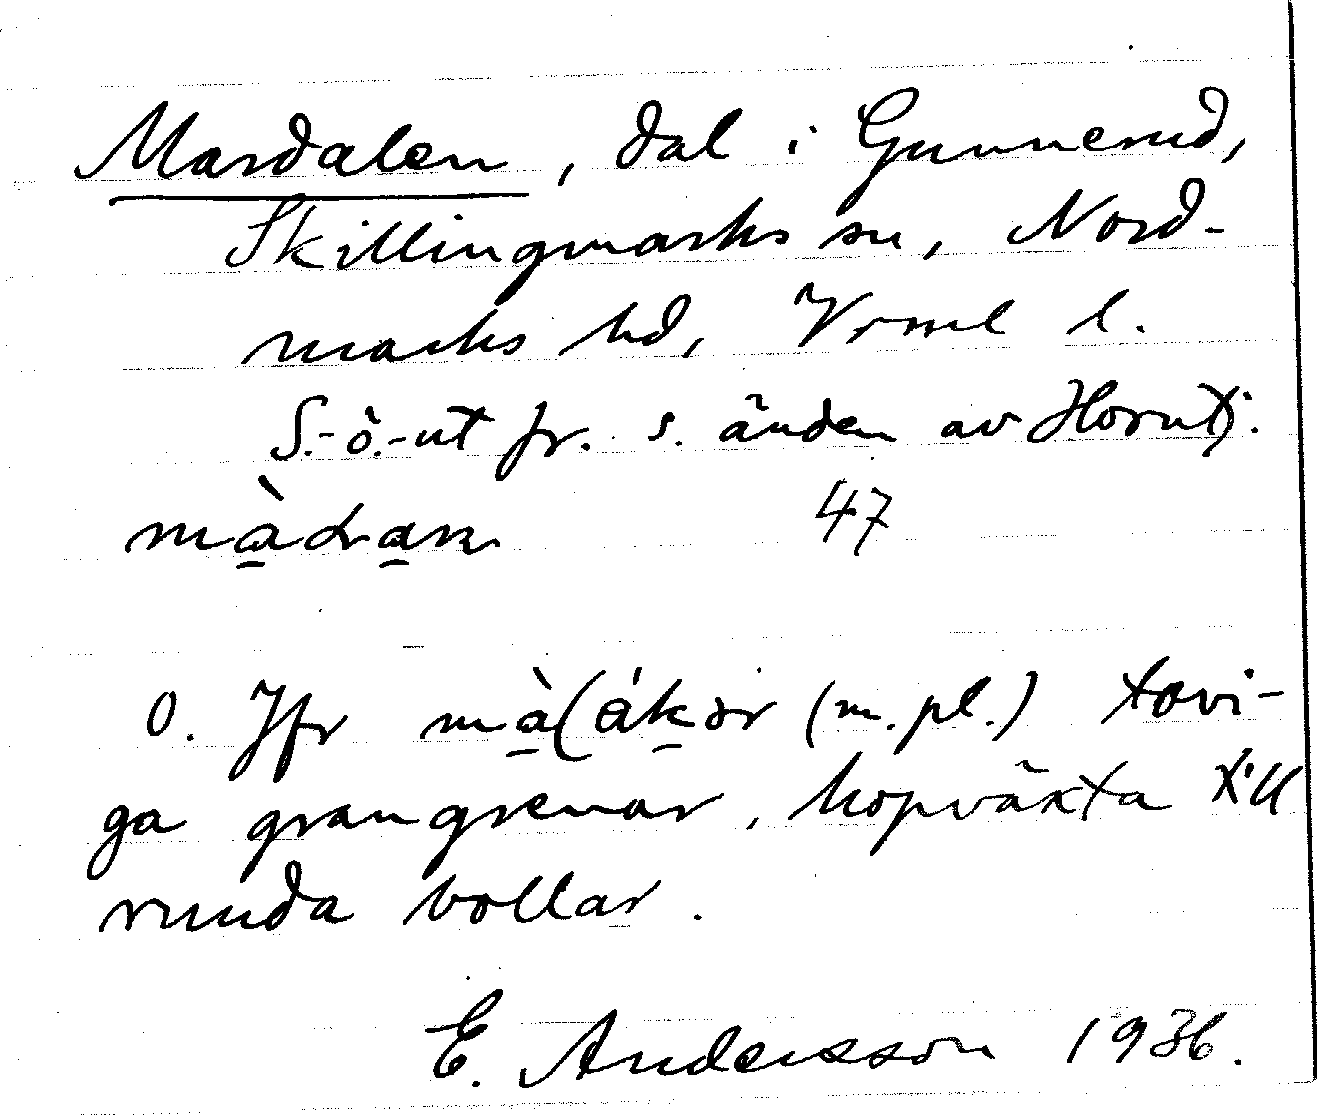 Mardalen, dal i Gunnerud,
Skillingmarks sn, Nord-
marks hd, Vrml l.
S.-ö.-ut fr. s. änden av Horntj.
47
O. Jfr (m.pl.) tovi-
ga grangrenar, hopväxta till
runda bollar.
E. Andersson 1936.